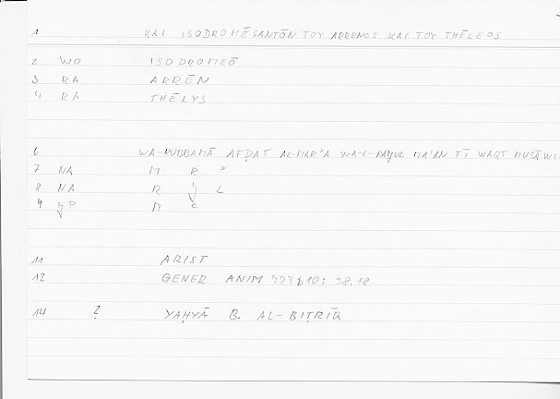 1 KAI ISODROMĒSANTŌN TOY ARRENOS KAI TOY THĒLEOS
2 WO ISODROMEŌ
3 RA ARRĒN
4 RA THĒLYS
6 WA-RUBBAMĀ AFḌAT AL-MARʾA WA-L-RAǦUL MAʿAN FĪ WAQT MUSĀWI
7 NA M R ʾ
8 NA R ǧ L
9 ǧP M ʿ
11 ARIST
12 GENER ANIM 38,18
14 ? YAḤYĀ B. AL-BIṬRĪQ